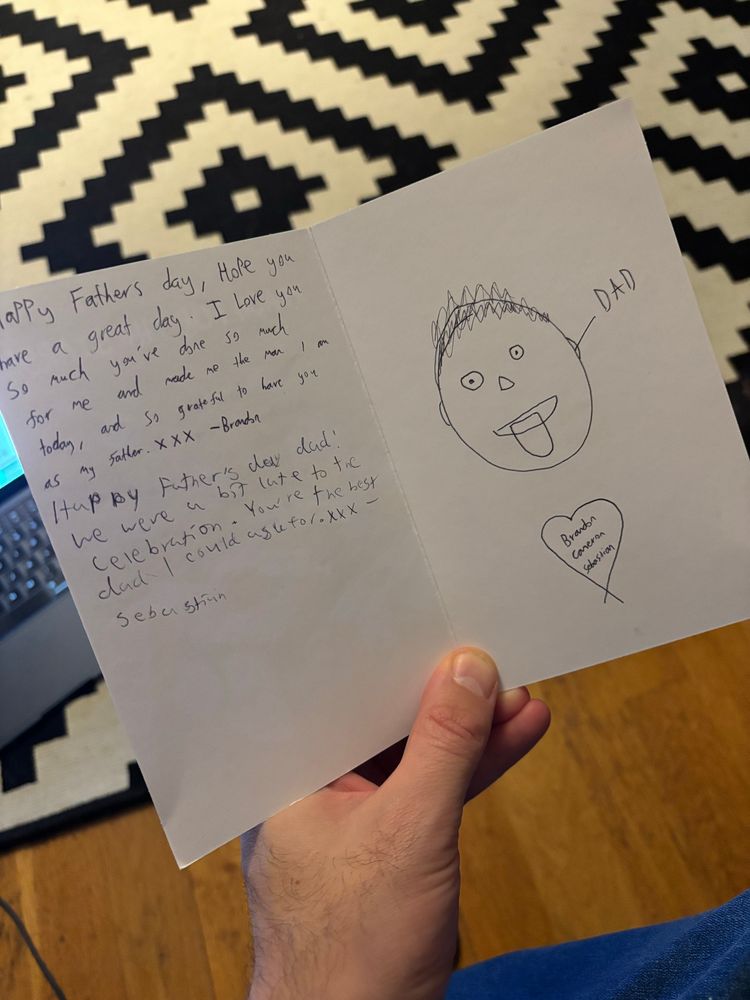 Happy Fathers day, Hope you
have a great day. I Love you
so much you've done so much
for me and made me the man I am
today, and so grateful to have you
as my father. XXX - Brandon
Happy Father's day dad!
we were a bit late to the
celebration. You're the best
dad I could ask for. xxx -
Sebastian
DAD
Brandon
Cameron
Sebastian